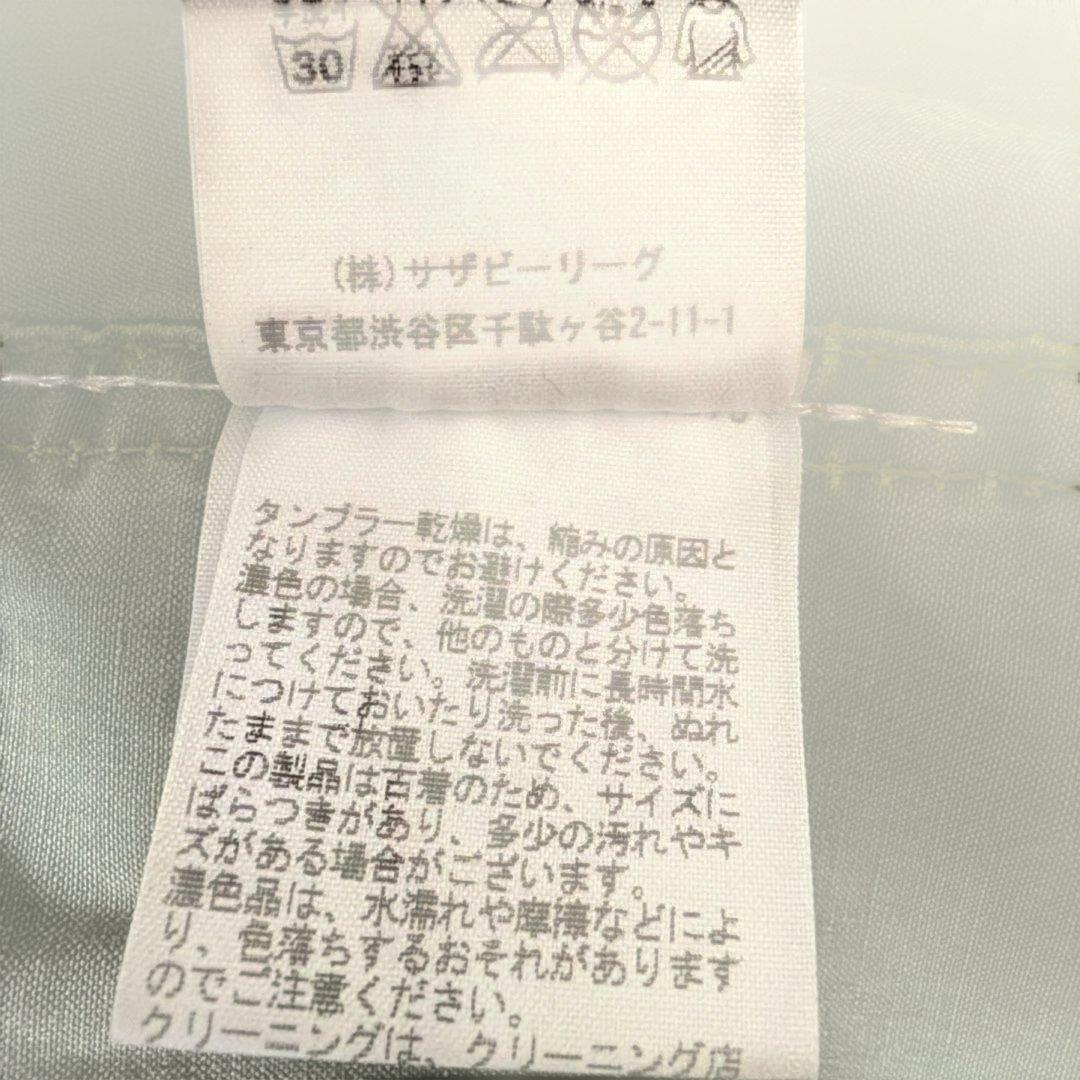 30
(株)サザビーリーグ
東京都渋谷区千駄ヶ谷2-11-1
タンブラー乾燥は、縮みの原因と
なりますのでお避けください。
濃色の場合、洗濯の際多少色落ち
しますので、他のものと分けて洗
ってください。洗濯前に長時間水
につけておいたり洗った後、ぬれ
たままで放置しないでください。
この製品は古着のため、サイズに
ばらつきがあり、多少の汚れやキ
ズがある場合がございます。
濃色品は、水濡れや摩擦などによ
り、色落ちするおそれがあります
のでご注意ください。
クリーニングは、クリーニング店